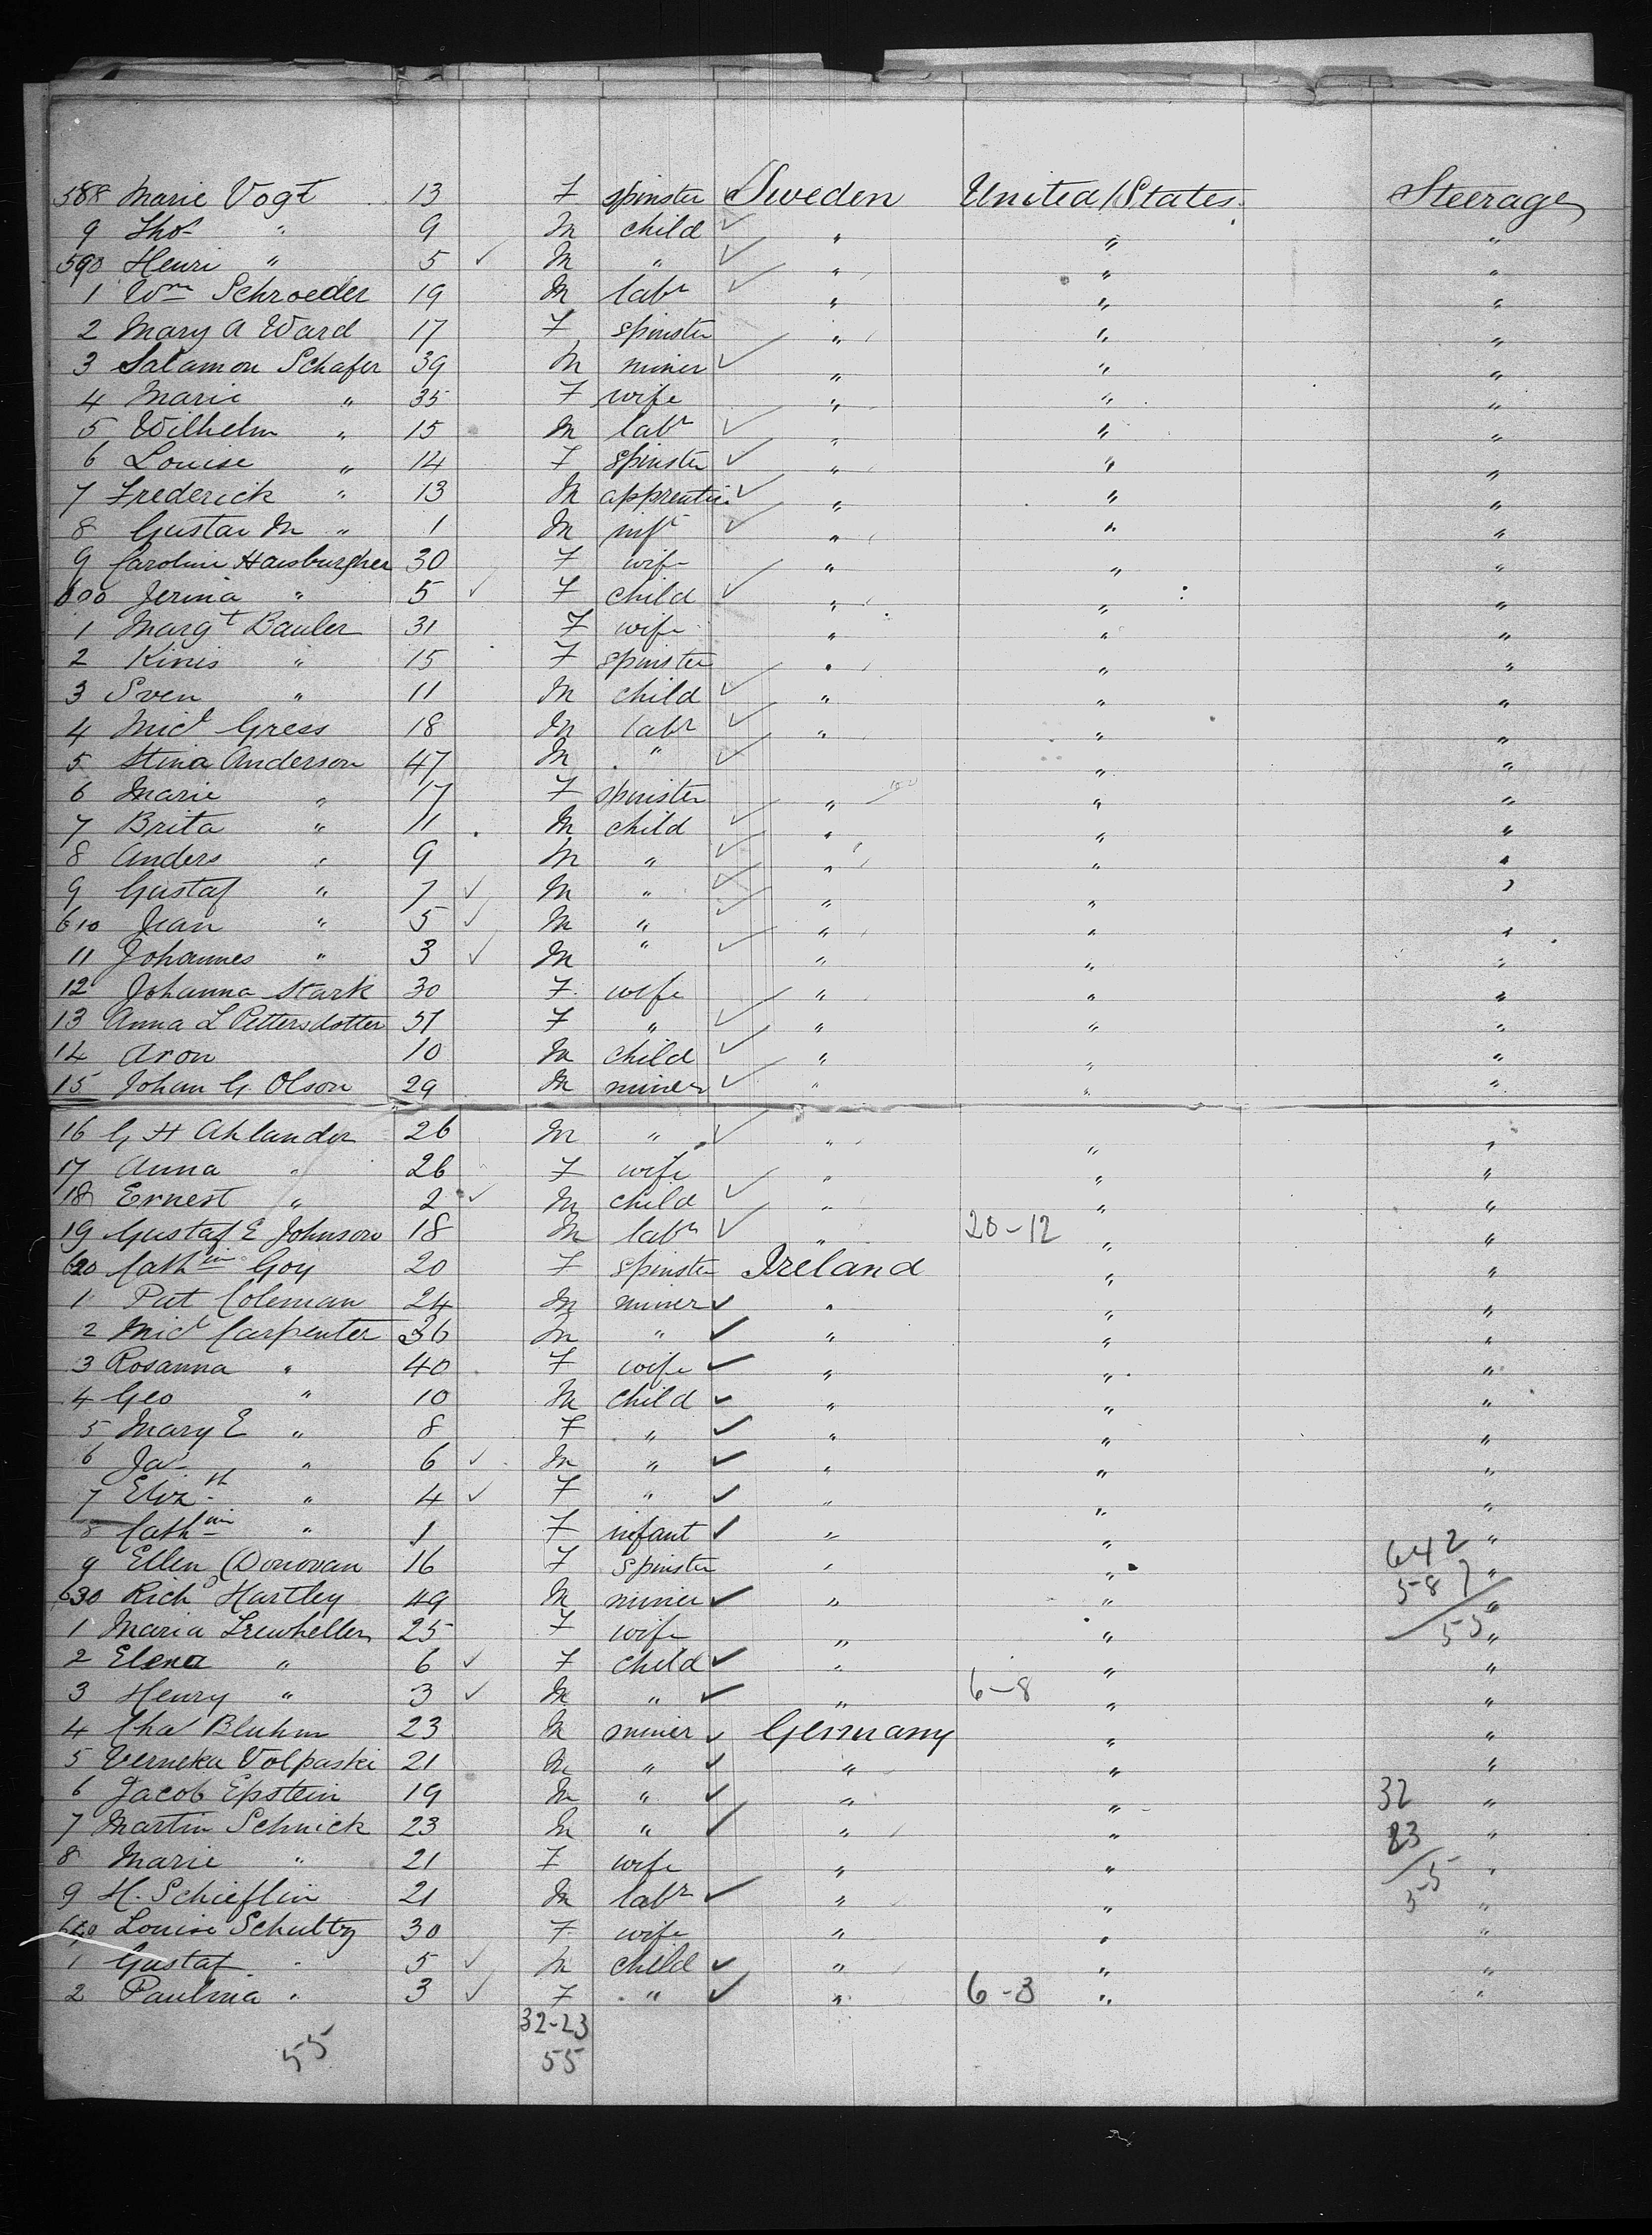 588 Marie Vogt 13 F spinster Sweden United States Steerage
9 Thos " 9 M child " " "
590 Henri " 5 ✓ M " " " "
1 Wm Schroeder 19 M labr " " "
2 Mary A Ward 17 F spinster " " "
3 Salamon Schafer 39 M miner " " "
4 Marie " 35 F wife " " "
5 Wilhelm " 15 M labr " " "
6 Louise " 14 F spinster " " "
7 Frederick " 13 M apprentice " " "
8 Gustav M " 1 M inft " " "
9 Caroline Hansburgher 30 F wife " " "
600 Jerina " 5 ✓ F child " " "
1 Margt Bauler 31 F wife " " "
2 Kinis " 15 F spinster " " "
3 Sven " 11 M child " " "
4 Micl Gress 18 M labr " " "
5 Stina Anderson 47 M " " "
6 Marie " 17 F spinster " " "
7 Brita " 11 M child " " "
8 Anders " 9 M " " " "
9 Gustaf " 7 ✓ M " " " "
610 Jean " 5 ✓ M " " " "
11 Johannes " 3 ✓ M " " " "
12 Johanna Stark 30 F wife " " "
13 Anna L Pettersdotter 51 F " " " "
14 Aron 10 M child " " "
15 Johan G Olson 29 M miner " " "
16 G H Ahlander 26 M " " " "
17 Anna " 26 F wife " " "
18 Ernest " 2 ✓ M child " " "
19 Gustaf E Johnson 18 M labr " 20-12 " "
620 Cathine Goy 20 F spinster Ireland " "
1 Pat Coleman 24 M miner " " "
2 Micl Carpenter 36 M " " " "
3 Rosanna " 40 F wife " " "
4 Geo " 10 M child " " "
5 Mary E " 8 F " " " "
6 Jas " 6 ✓ M " " " "
7 Elizth " 4 ✓ F " " " "
8 Cathine " 1 F infant " " "
9 Ellen Donovan 16 F spinster " " 642 "
630 Richd Hartley 49 M miner " " 587 "
1 Maria Trewhellen 25 F wife " " 55 "
2 Elena " 6 ✓ F child " " "
3 Henry " 3 ✓ M " " 6-8 " "
4 Chas Bluhm 23 M miner Germany " "
5 Verneka Volpaski 21 M " " " "
6 Jacob Epstein 19 M " " " 32 "
7 Martin Schnick 23 M " " " 23 "
8 Marie " 21 F wife " " "
9 H. Schieflin 21 M labr " " 55 "
640 Louise Schultz 30 F wife " " "
1 Gustaf " 5 ✓ M child " " "
2 Paulina " 3 ✓ F " " 6-3 " "
32-23
55 55